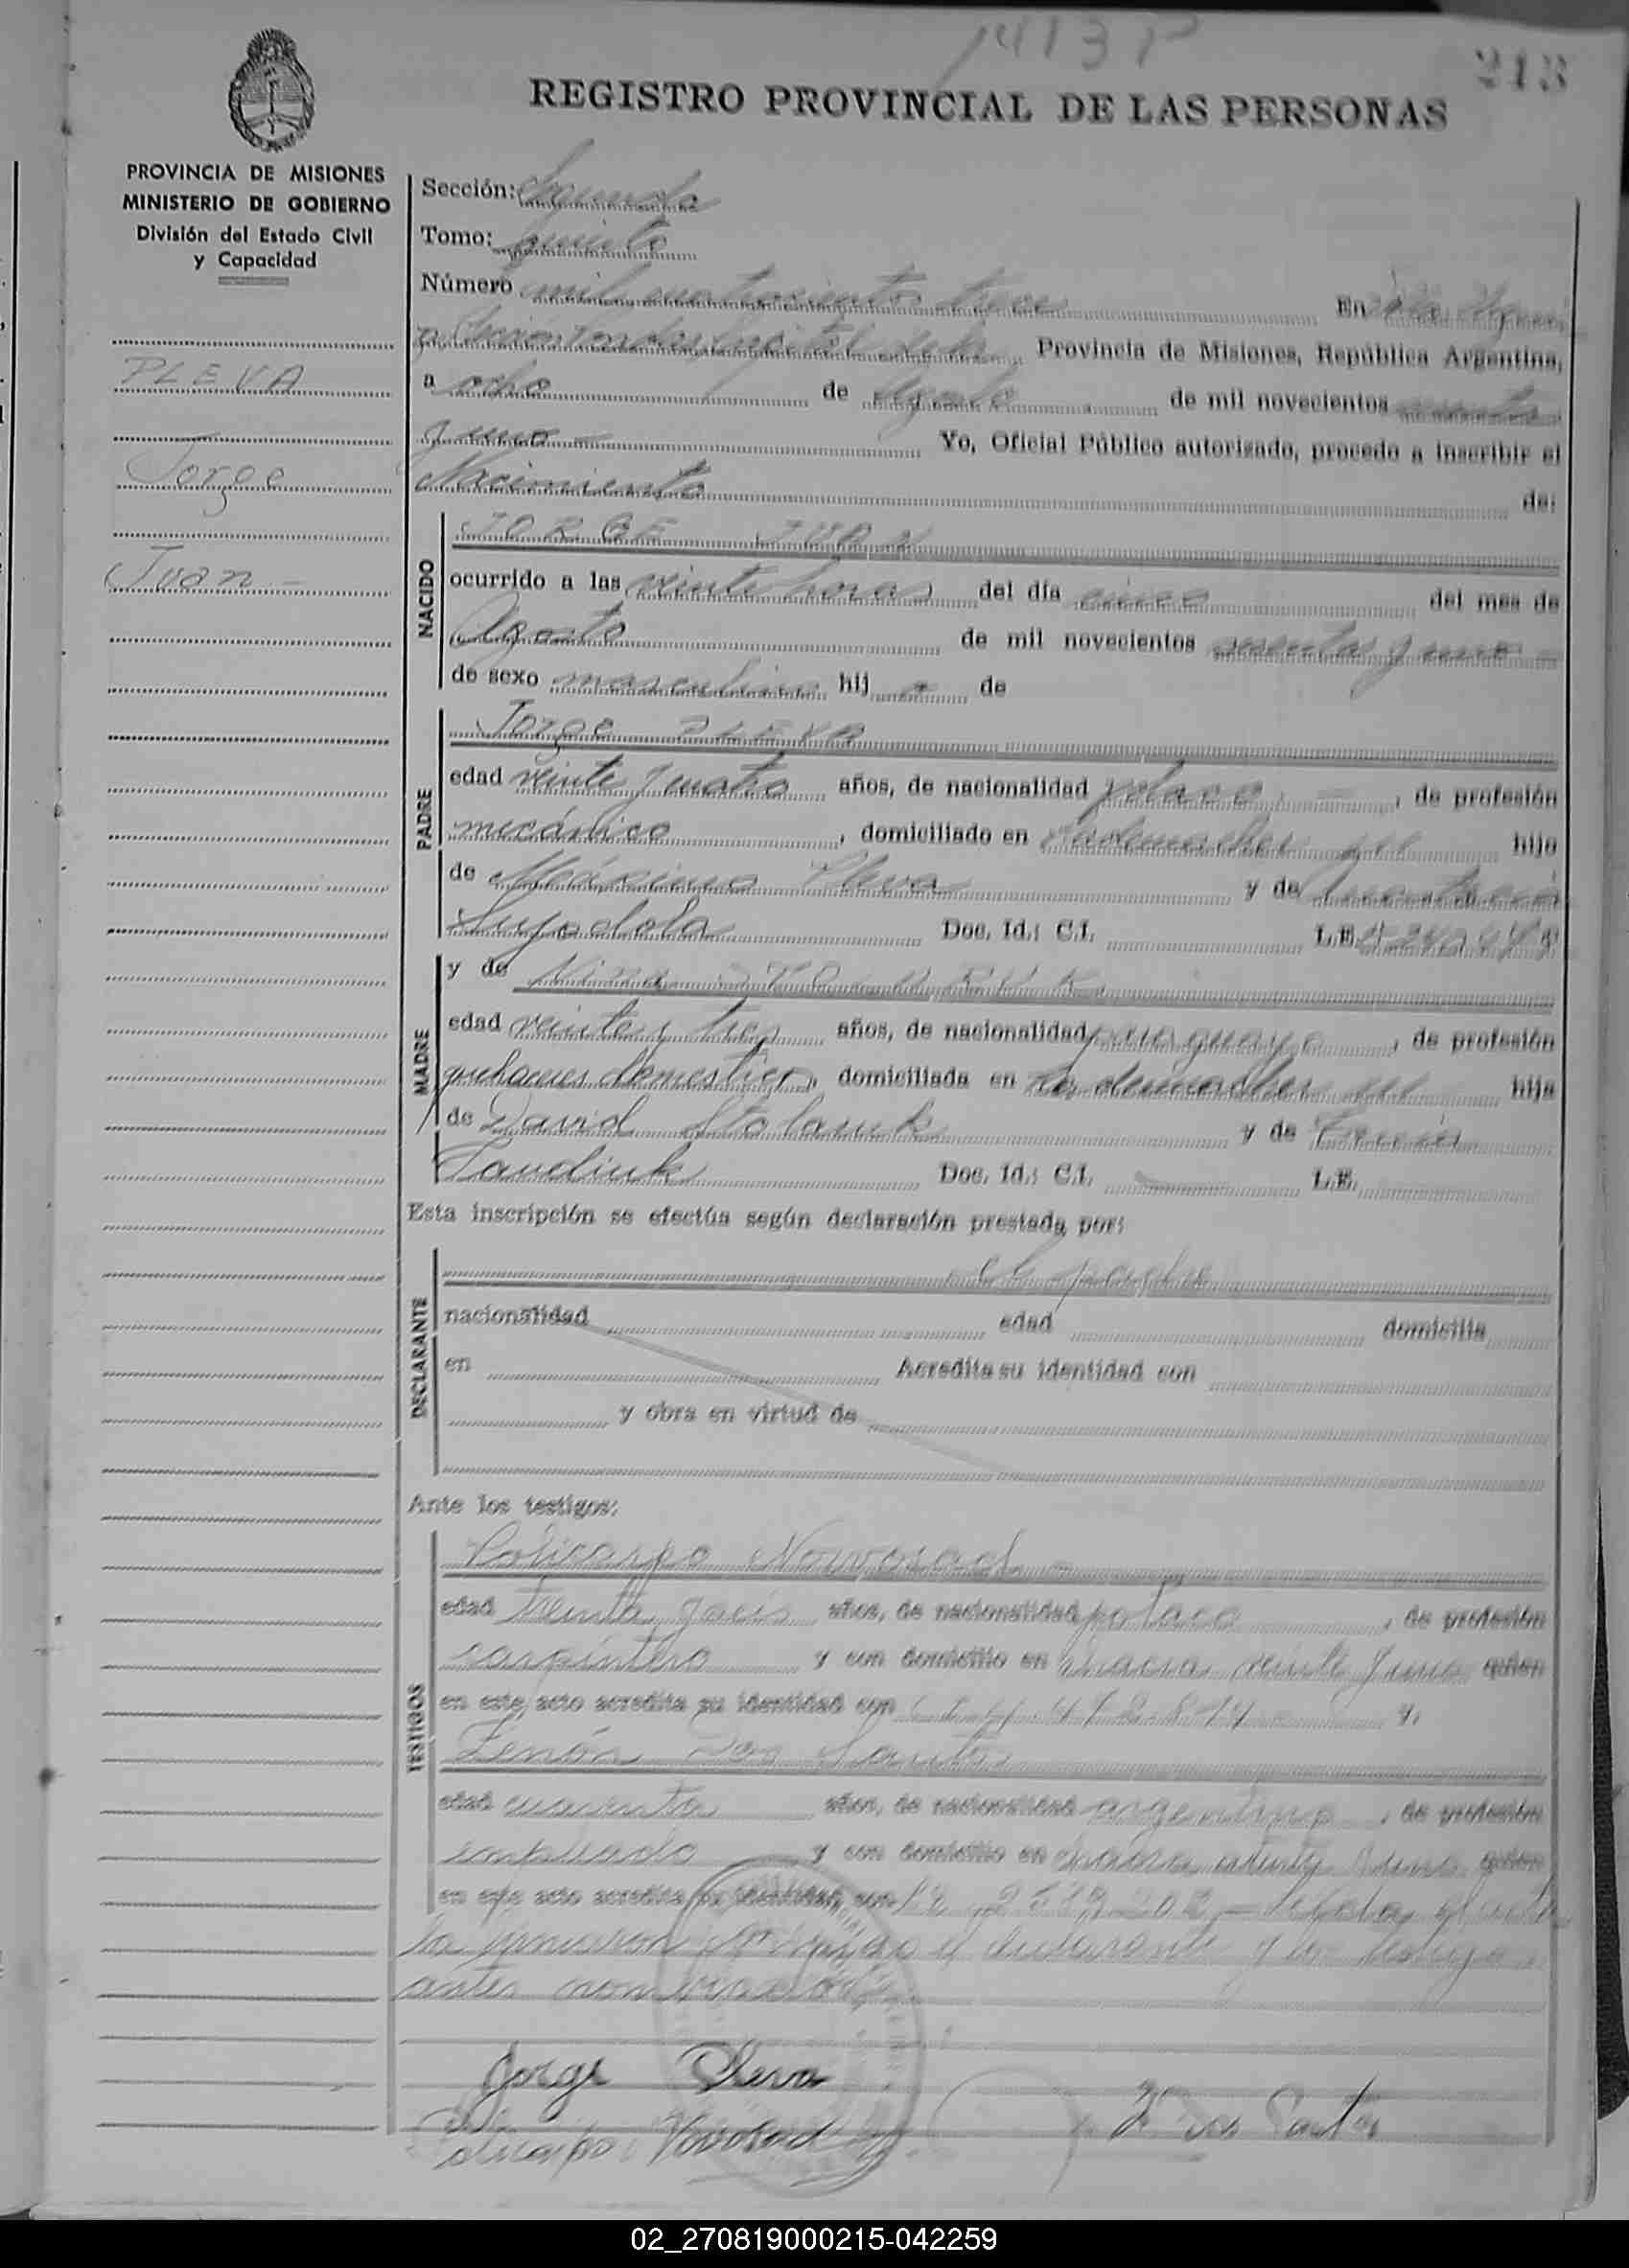 1413 P
213
REGISTRO PROVINCIAL DE LAS PERSONAS
PROVINCIA DE MISIONES
MINISTERIO DE GOBIERNO
División del Estado Civil
y Capacidad
PLEVA
Jorge
Juan
Sección: Segunda
Tomo: quinto
Número mil cuatrocientos trece En
Provincia de Misiones, República Argentina,
a ocho de Agosto de mil novecientos sesenta
y uno Yo, Oficial Público autorizado, procedo a inscribir el
Nacimiento de:
NACIDO
JORGE JUAN
ocurrido a las veinte horas del día cinco del mes de
Agosto de mil novecientos sesenta y uno
de sexo masculino hij o de
PADRE
Jorge PLEVA
edad veinte y cuatro años, de nacionalidad polaco, de profesión
mecánico, domiciliado en hijo
de Máximo Pleva y de
Doc. Id.: C.I. L.E.
MADRE
y de Nina STOLARUK
edad veinte y tres años, de nacionalidad paraguaya, de profesión
quehaceres domésticos, domiciliada en hija
de David Stolaruk y de
Doc. Id.: C.I. L.E.
Esta inscripción se efectúa según declaración prestada por:
DECLARANTE
el padre
nacionalidad edad domicilia
en Acredita su identidad con
y obra en virtud de
Ante los testigos:
TESTIGOS
Policarpo Nowosad
edad treinta y seis años, de nacionalidad polaca, de profesión
carpintero y con domicilio en chacra veinte y uno quien
en este acto acredita su identidad con y,
Zenón Dos Santos
edad cuarenta años, de nacionalidad argentina, de profesión
empleado y con domicilio en chacra quien
en este acto acredita su identidad con Leída el acta
la firmaron conmigo el declarante y los testigos
antes nombrados
Jorge Pleva
Policarpo Novosad
Z. Dos Santos
02_270819000215-042259